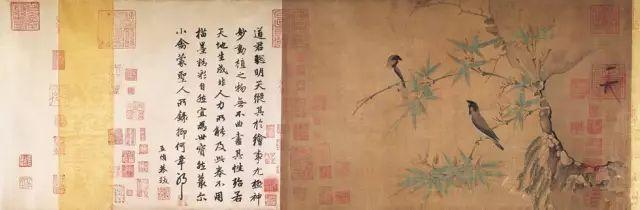 道君聰明天縱其於繪事尤極神
妙動植之物無不曲盡其性殆若
天地生成非人力所能及此卷不用
描墨粉彩自然宜為世寶然蕞尔
小禽蒙聖人所錄抑何幸耶
孟頫恭跋